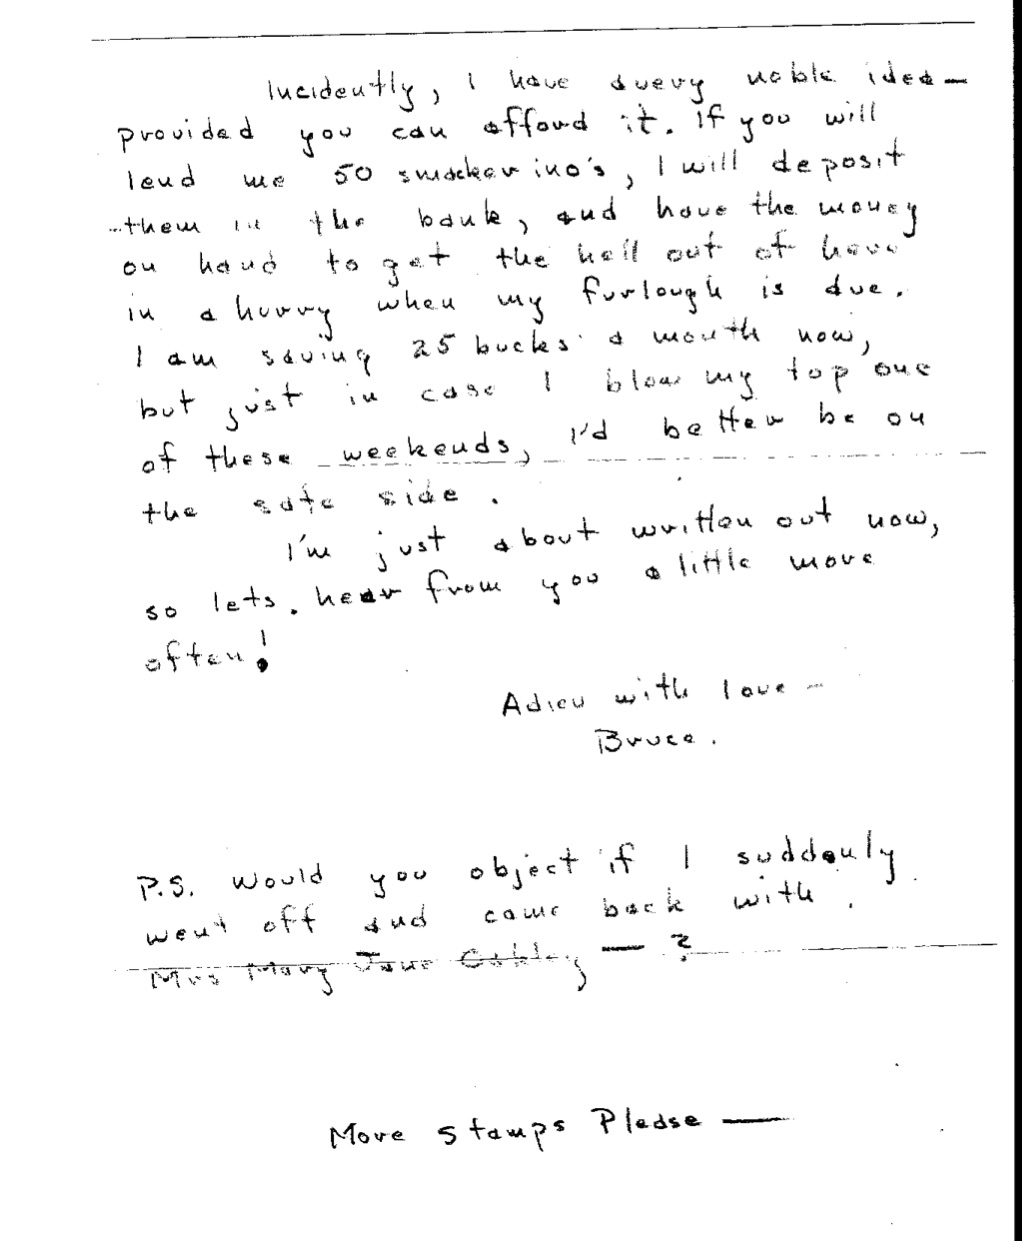 Incidently, I have a very noble idea —
provided you can afford it. If you will
lend me 50 smackerino's, I will deposit
them in the bank, and have the money
on hand to get the hell out of here
in a hurry when my furlough is due.
I am saving 25 bucks a month now,
but just in case I blow my top one
of these weekends, I'd better be on
the safe side.
I'm just about written out now,
so lets hear from you a little more
often!
Adieu with love —
Bruce.
P.S. Would you object if I suddenly
went off and came back with
Mrs Mary Jane — ?
More Stamps Please —